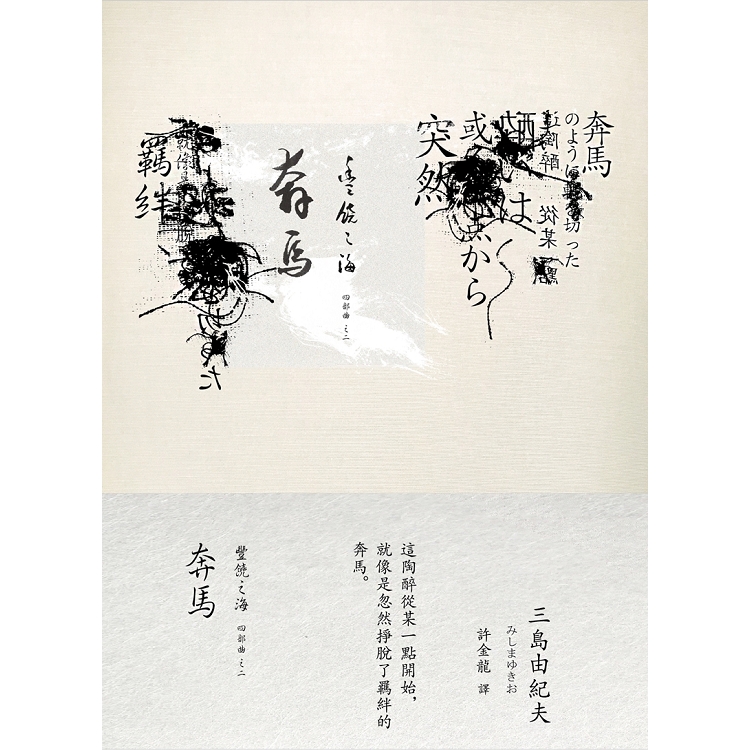 奔馬
のように
切った
從某
一點
或
点から
は
突然
豐饒之海
四部曲之二
奔馬
羈絆
就像是
脫
三島由紀夫
みしまゆきお
許金龍 譯
這陶醉從某一點開始，
就像是忽然掙脫了羈絆的
奔馬。
豐饒之海 四部曲之二
奔馬